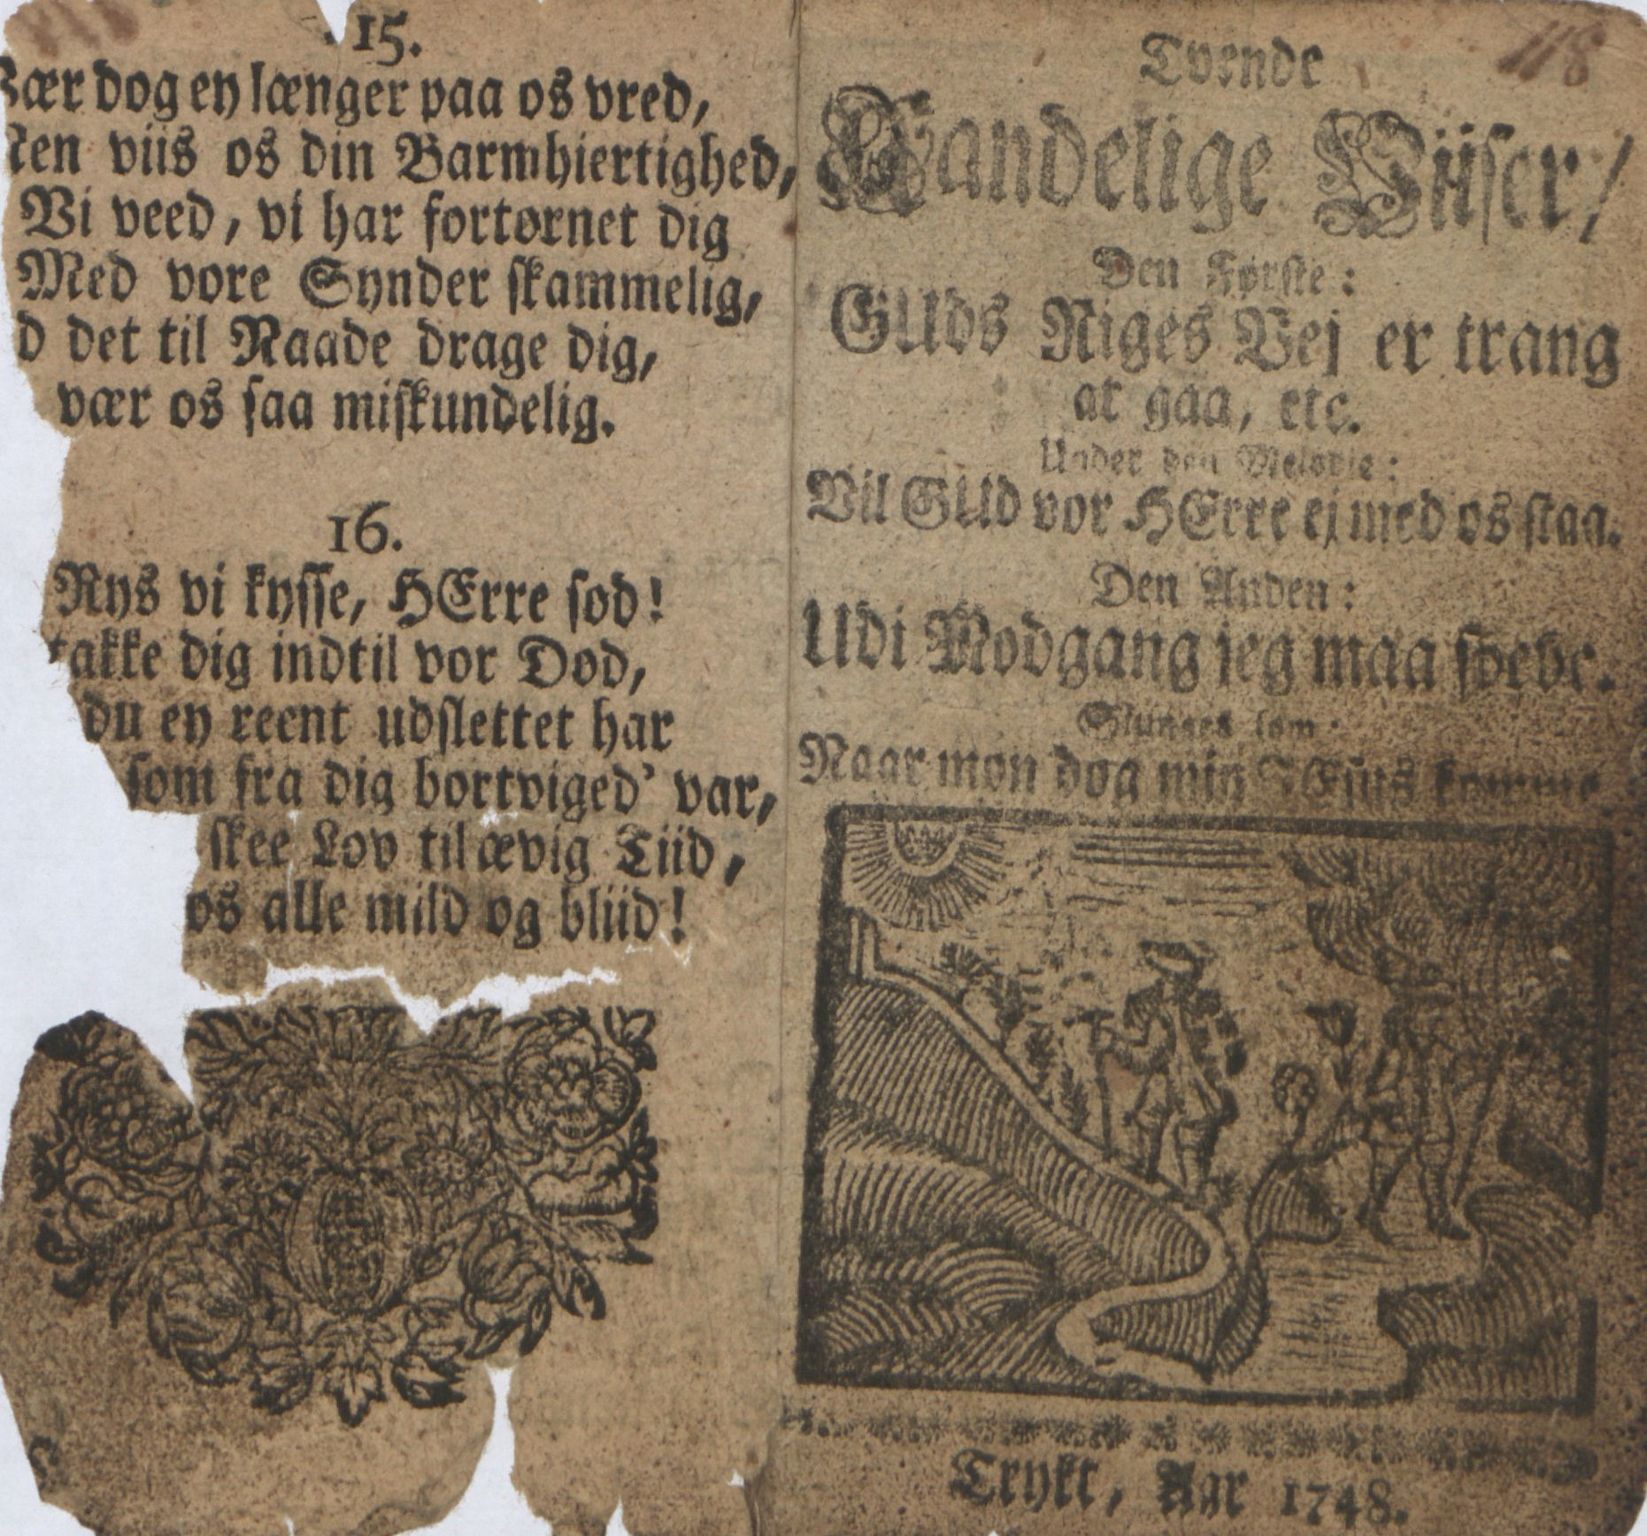 15.
Vær dog ey længer paa os vred,
Men viis os din Barmhiertighed,
Vi veed, vi har fortørnet dig
Med vore Synder skammelig,
det til Naade drage dig,
vær os saa miskundelig.
16.
Rys vi kysse, HErre sød!
takke dig indtil vor Død,
du ey reent udslettet har
som fra dig bortviged' var,
skee Lov til ævig Tiid,
os alle mild og bliid!
118
Tvende
Aandelige Viiser/
Den Første:
GUds Riges Vej er trang
at gaa, etc.
Under den Melodie:
Vil GUd vor HErre ej med os staa.
Den Anden:
Udi Modgang jeg maa svæve.
Siunges som:
Naar mon dog min JEsus komme
Trykt, Aar 1748.